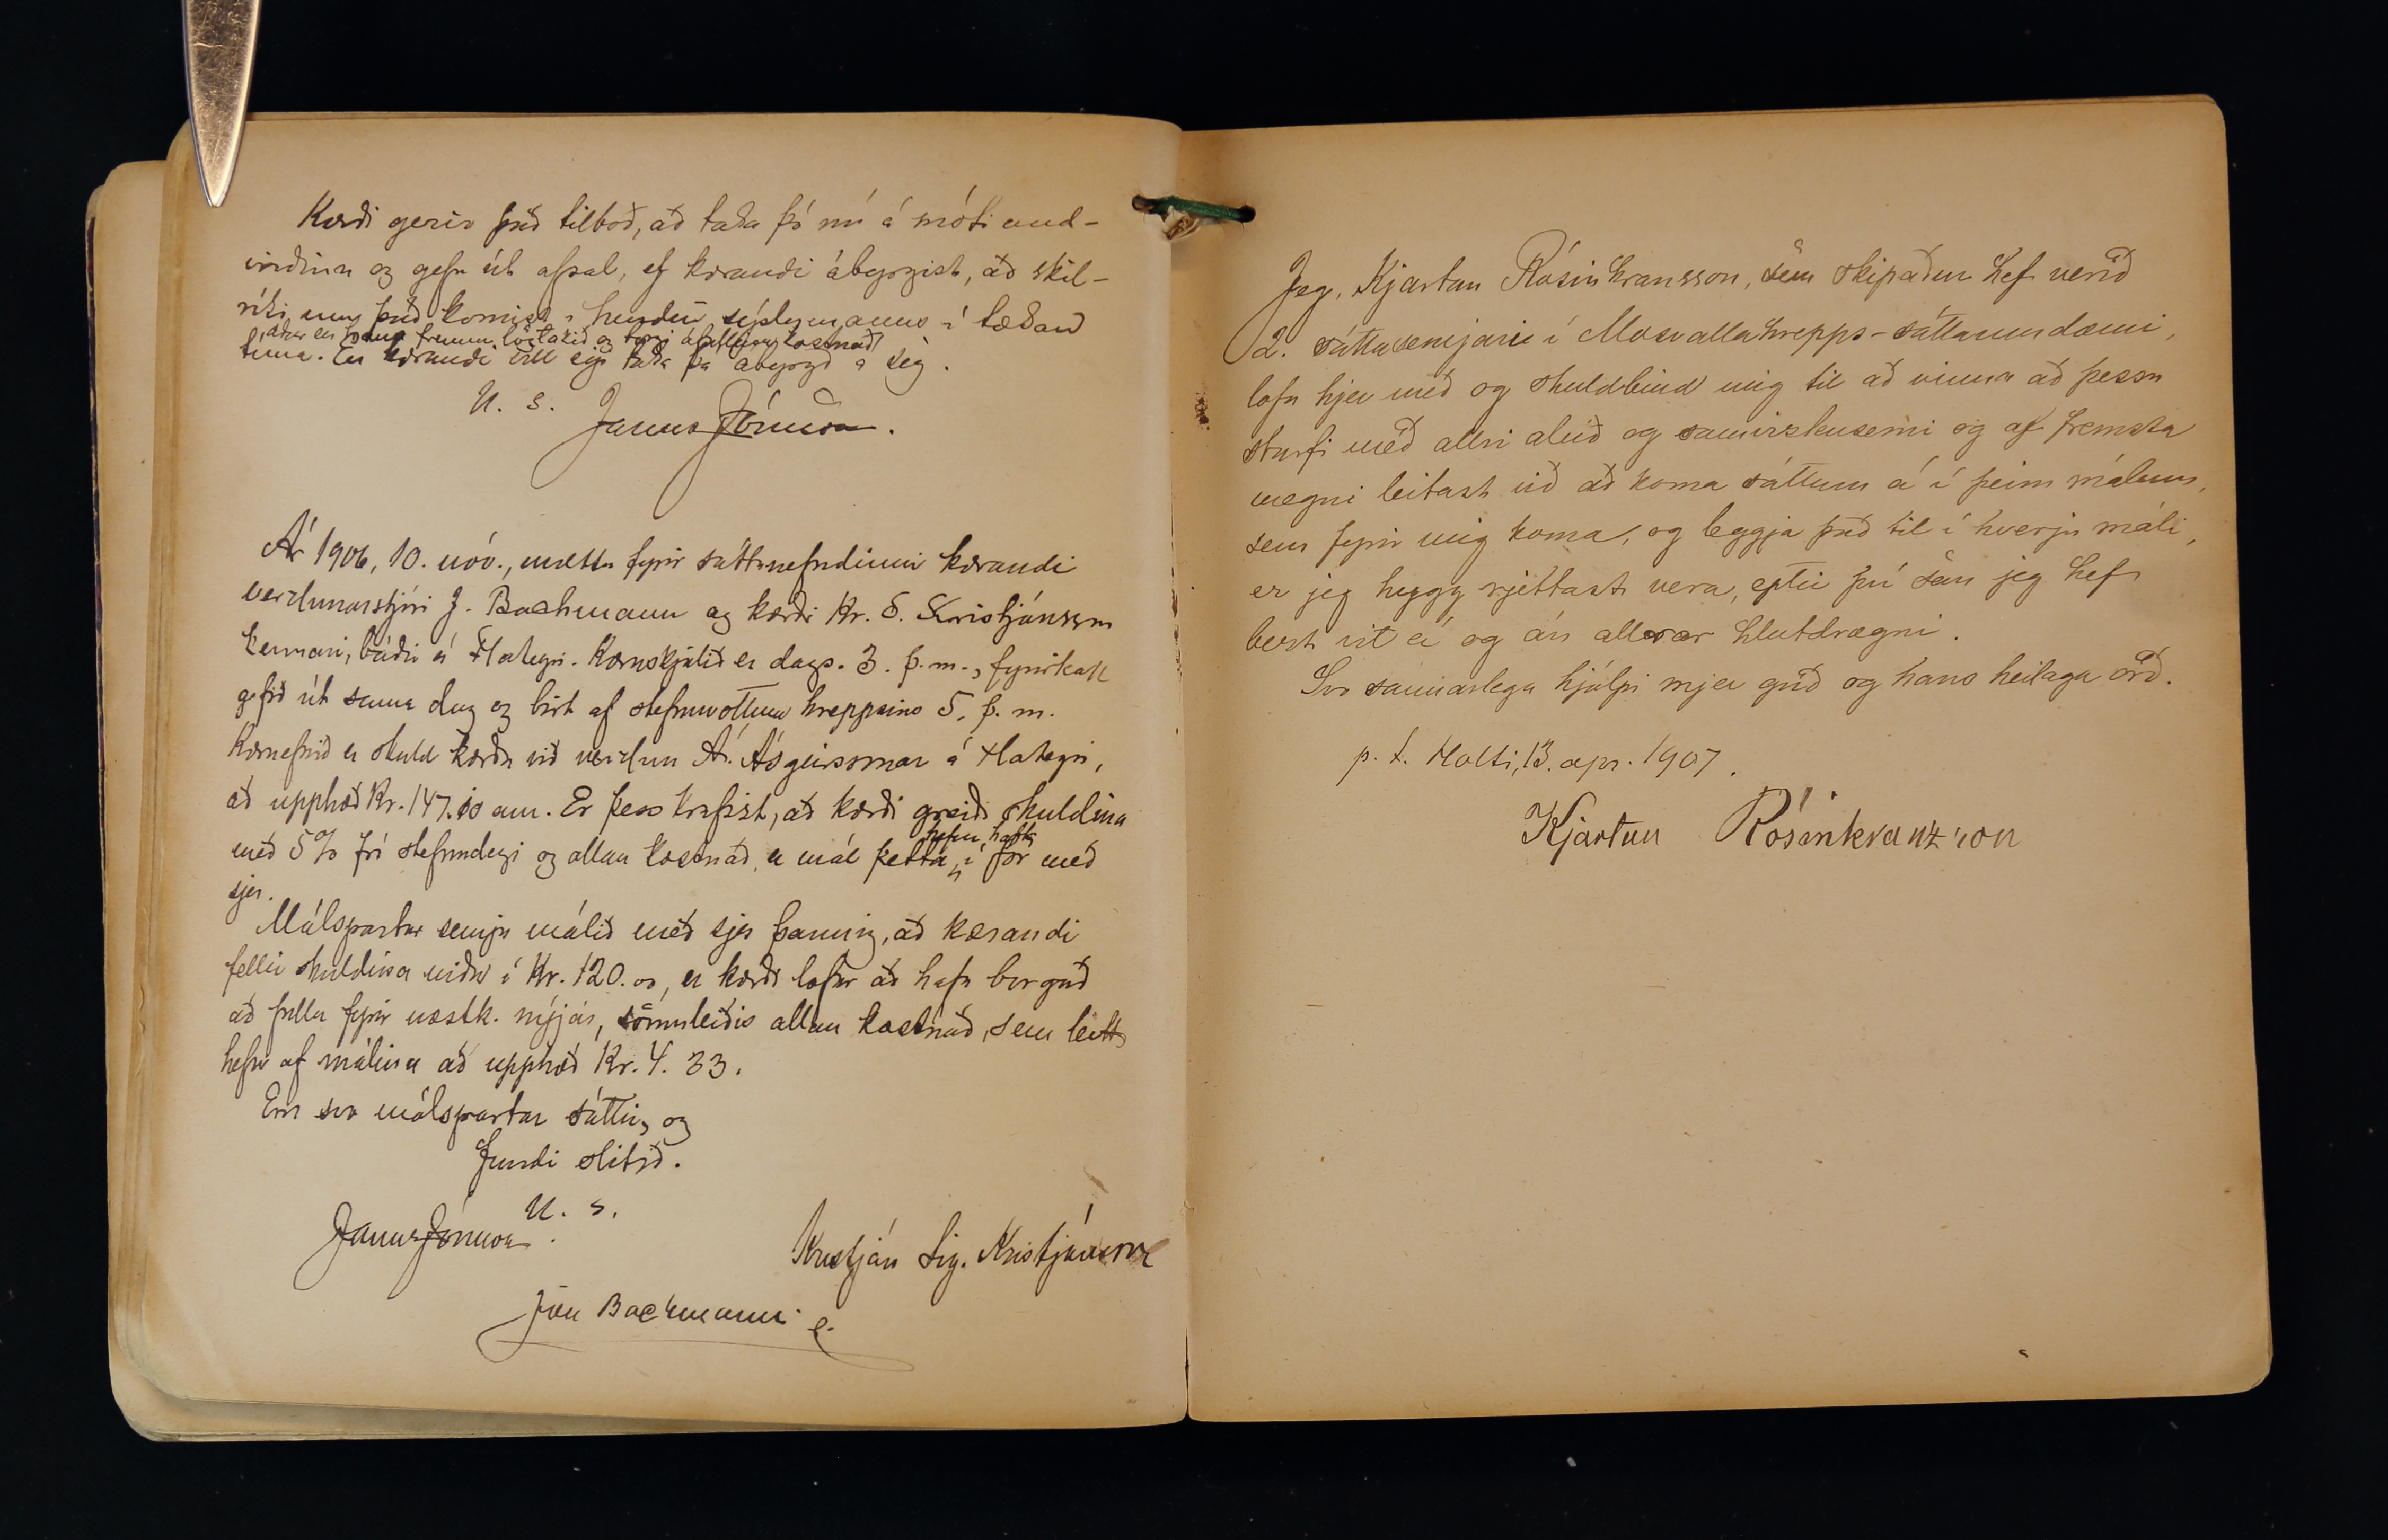 Kærði gerir það tilboð, að taka þó nú á móti and-
virðinu og gefa út afsal, ef kærandi ábyrgist, að skil-
ríki um það komist í hendur sýslumanns í tæka
áður en hann fremur lögtakið og þar áfallinn kostnað
tíma. En kærandi vill eigi taka þá ábyrgð á sig.
U. s.
Janus Jónsson.
Ár 1906, 10. nóv., mættu fyrir sáttanefndinni kærandi
verzlunarstjóri J. Bachmann og kærði Kr. S. Kristjánsson
kennari, báðir á Flateyri. Kæruskjalið er dags. 3. þ. m., fyrirkall
gefið út sama dag og birt af stefnuvottum hreppsins 5. þ. m.
Kæruefnið er skuld kærða við verzlun Á. Ásgeirssonar á Flateyri,
að upphæð Kr. 147.10 aur. Er þess krafist, að kærði greiði skuldina
með 5% frá stefnudegi og allan kostnað, er mál þetta hefur haft í för með
sjer.
Málspartar semja málið með sjer þannig, að kærandi
fellir skuldina niður í Kr. 120.00, er kærði lofar að hafa borgað
að fullu fyrir næstk. nýjár, sömuleiðis allan kostnað, sem leitt
hefur af málinu að upphæð Kr. 4.33.
Eru svo málspartar sáttir, og
fundi slitið.
U. s.
Janus Jónsson.
Kristján Sig. Kristjánsson
Jón Bachmann
Jeg, Kjartan Rósinkransson, sem skipaður hef verið
2. sáttasemjari í Mosvallahrepps-sáttaumdæmi,
lofa hjer með og skuldbind mig til að vinna að þessu
starfi með allri alúð og samvizkusemi og af fremsta
megni leitast við að koma sáttum á í þeim málum,
sem fyrir mig koma, og leggja það til í hverju máli,
er jeg hygg rjettast vera, eptir því sem jeg hef
bezt vit á og án allrar hlutdrægni.
Svo sannarlega hjálpi mjer guð og hans heilaga orð.
p. t. Holti, 13. apr. 1907.
Kjartan Rósinkranzson